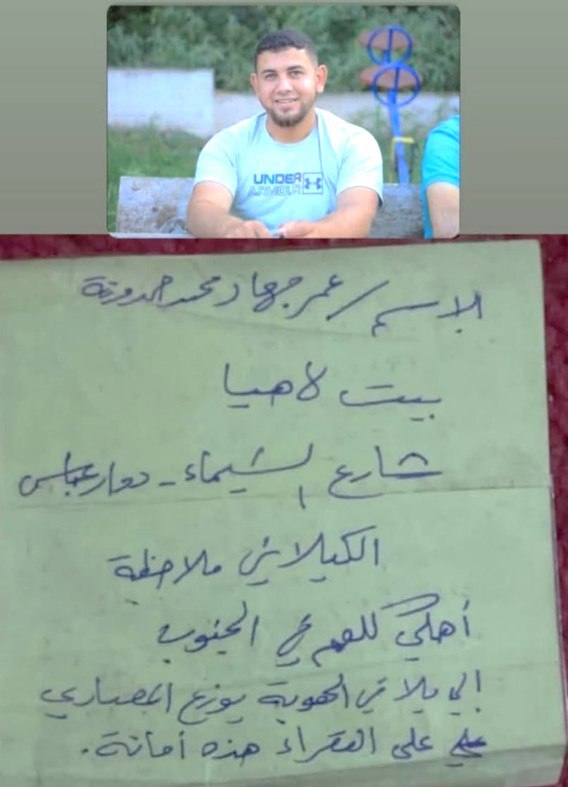 UNDER
ARMOUR
الاسم / عمر جهاد محمد حمدونة
بيت لاهيا
شارع الشيماء - دوار عباس
الكيلاني ملاحظة
أهلي كلهم في الجنوب
الي يلاقي الهوية يوزع المصاري
على الفقراء هذه أمانة.